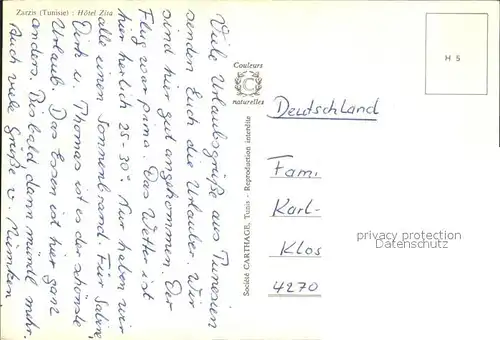 Zarzis (Tunisie) : Hôtel Zita
Viele Urlaubsgrüße aus Tunesien
senden Euch die Urlauber. Wir
sind hier gut angekommen. Der
Flug war prima. Das Wetter ist
hier herlich 25-30° Nur haben wir
alle einen Sonnenbrand. Für Sabine,
Dirk u. Thomas ist es der schönste
Urlaub. Das Essen ist hier ganz
anders. Bis bald dann mündl mehr.
Auch viele Grüße v.
Couleurs
C
naturelles
Société CARTHAGE, Tunis - Reproduction interdite
H 5
Deutschland
Fam.
Karl-
Klos
4270
privacy protection
Datenschutz